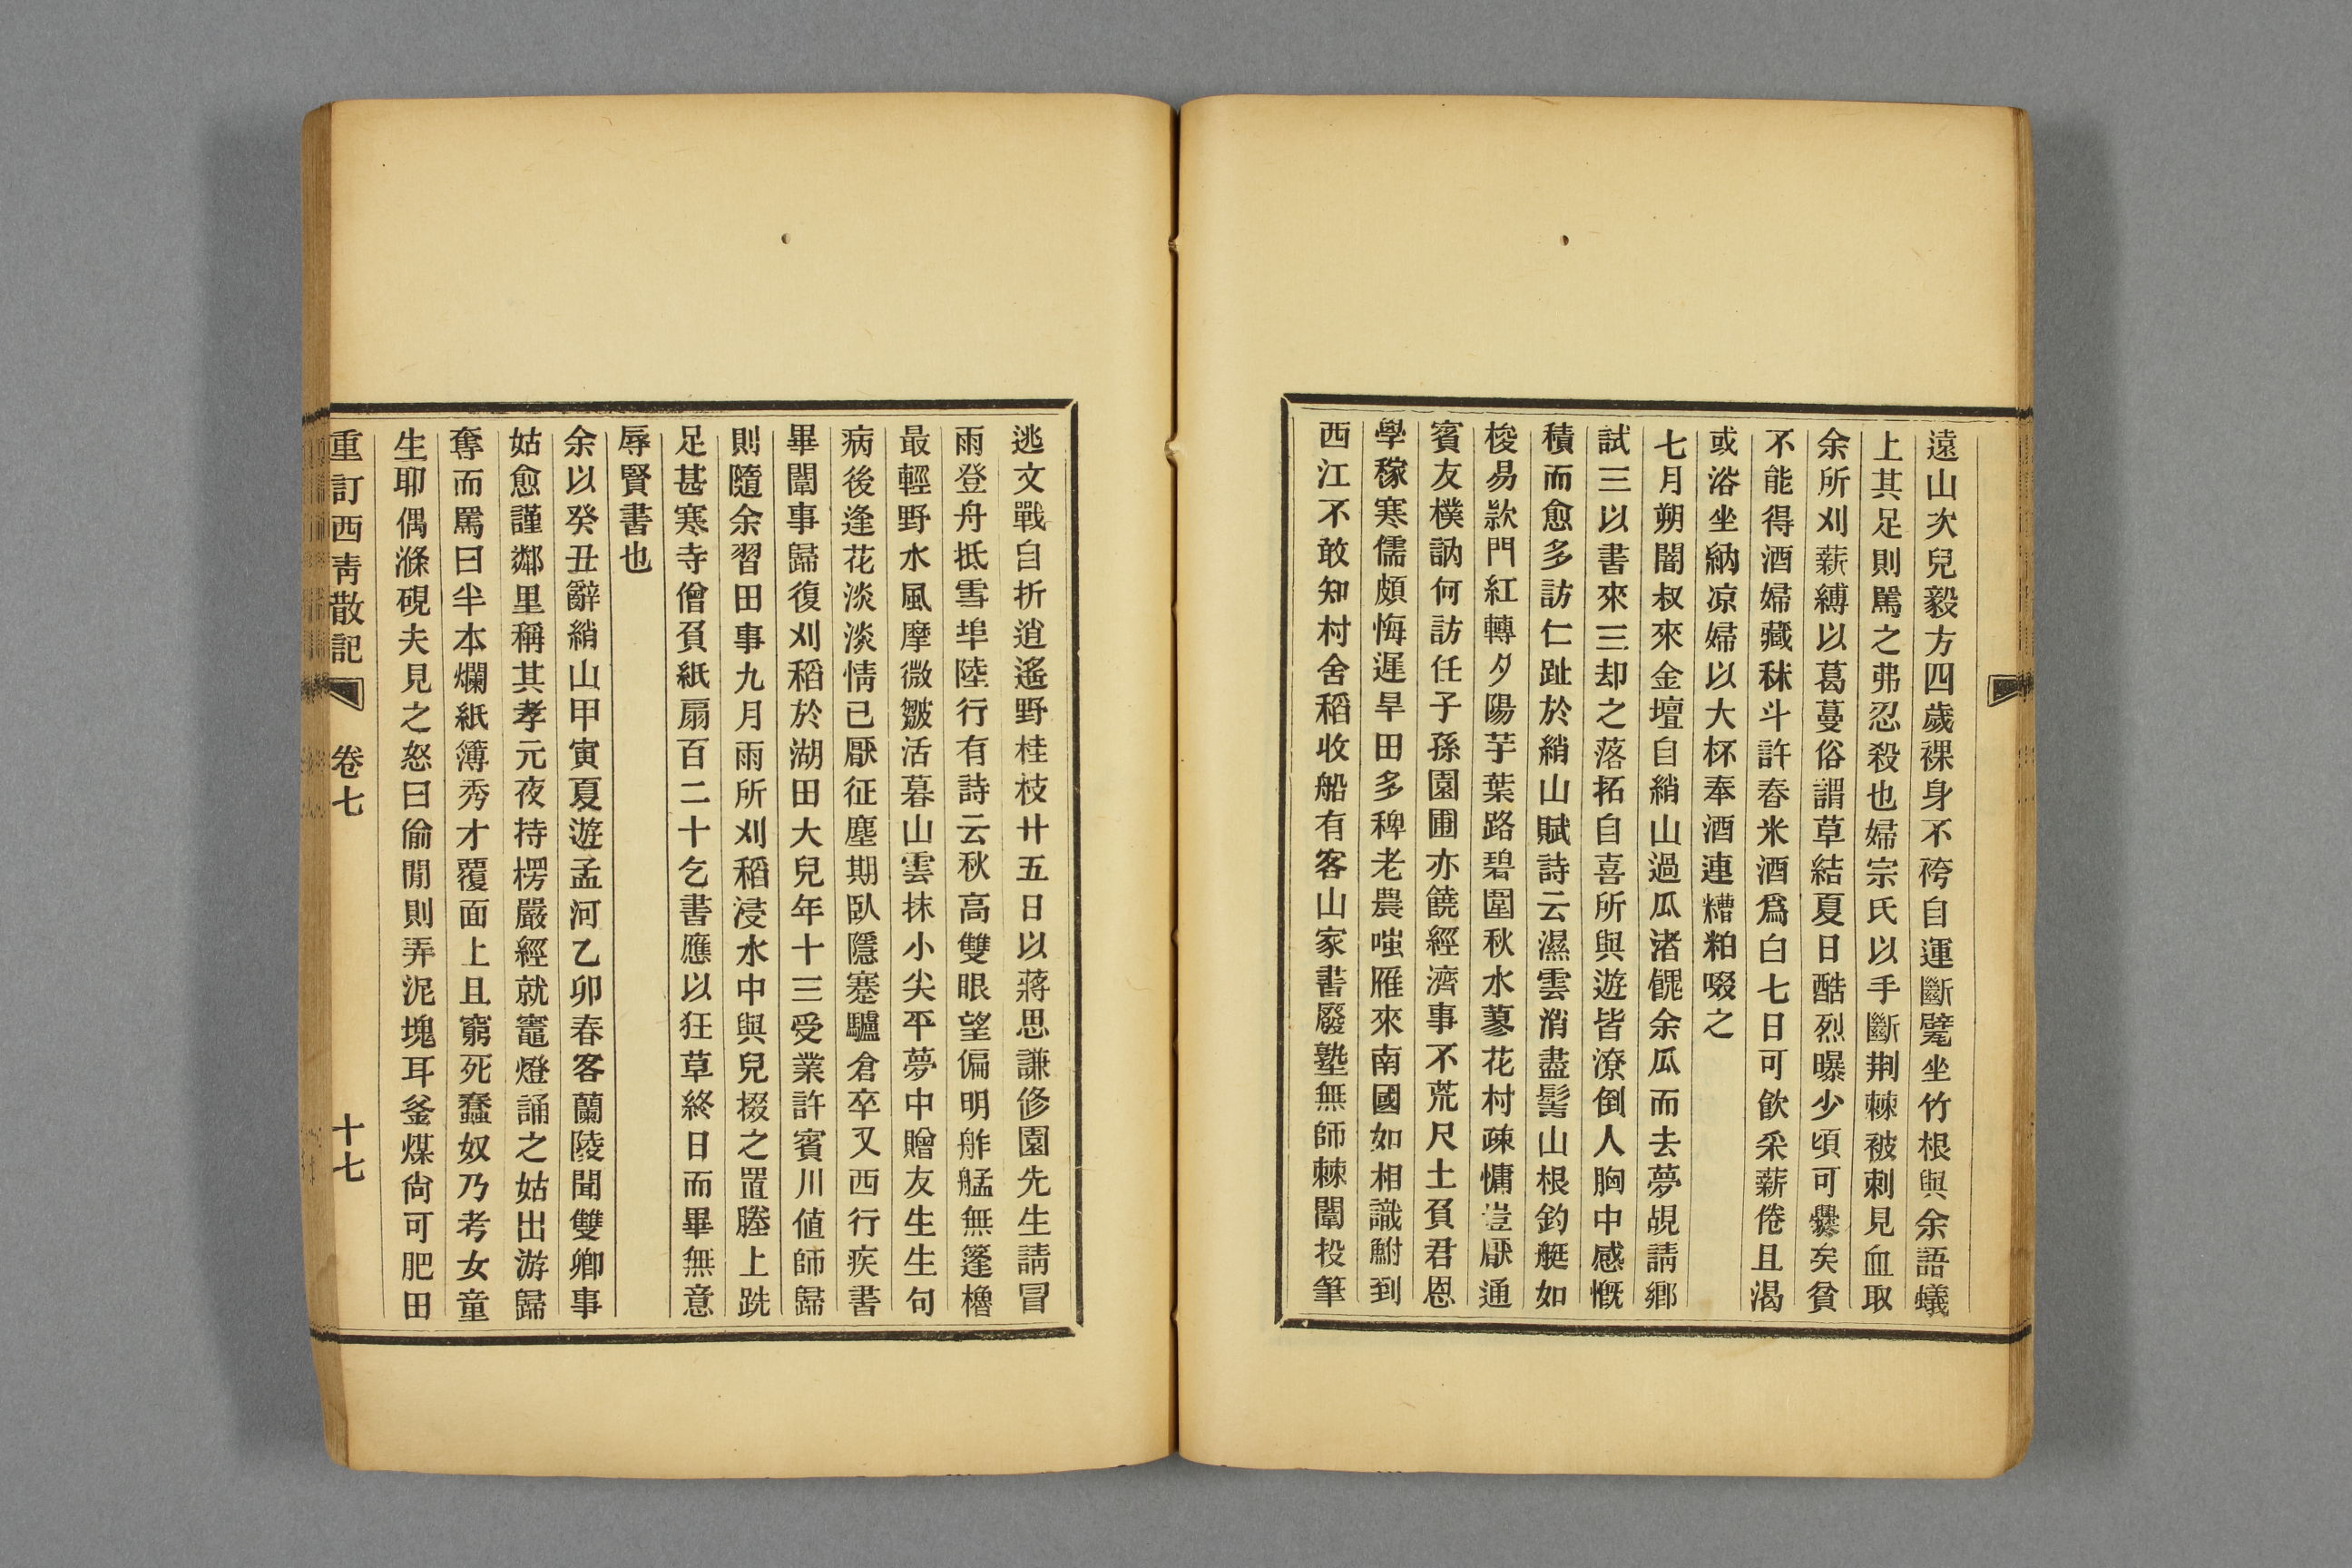 遠山次兒毅方四歲裸身不袴自運斷甓坐竹根與余語蟻
上其足則罵之弗忍殺也婦宗氏以手斷荆棘被刺見血取
余所刈薪縛以葛蔓俗謂草結夏日酷烈曝少頃可爨矣貧
不能得酒婦藏秫斗許舂米酒爲白七日可飲采薪倦且渴
或浴坐納凉婦以大杯奉酒連糟粕啜之
七月朔闇叔來金壇自綃山過瓜渚餽余瓜而去夢覘請鄉
試三以書來三却之落拓自喜所與遊皆潦倒人胸中感慨
積而愈多訪仁趾於綃山賦詩云濕雲消盡髻山根釣艇如
梭易欵門紅轉夕陽芋葉路碧圍秋水蓼花村疎慵豈厭通
賓友樸訥何訪任子孫園圃亦饒經濟事不荒尺土負君恩
學稼寒儒頗悔遲旱田多稗老農嗤雁來南國如相識鮒到
西江不敢知村舍稻收船有客山家書廢塾無師棘闈投筆
逃文戰自折逍遙野桂枝廿五日以蔣思謙修園先生請冒
雨登舟抵雪埠陸行有詩云秋高雙眼望偏明舴艋無篷櫓
最輕野水風摩微皺活暮山雲抹小尖平夢中贈友生生句
病後逢花淡淡情已厭征塵期臥隱蹇驢倉卒又西行疾書
畢闈事歸復刈稻於湖田大兒年十三受業許賓川値師歸
則隨余習田事九月雨所刈稻浸水中與兒掇之置塍上跣
足甚寒寺僧負紙扇百二十乞書應以狂草終日而畢無意
辱賢書也
余以癸丑辭綃山甲寅夏遊孟河乙卯春客蘭陵聞雙卿事
姑愈謹鄰里稱其孝元夜持楞嚴經就竈燈誦之姑出游歸
奪而罵曰半本爛紙簿秀才覆面上且窮死蠢奴乃考女童
生耶偶滌硯夫見之怒曰偷閒則弄泥塊耳釜煤尙可肥田
重訂西青散記 卷七 十七